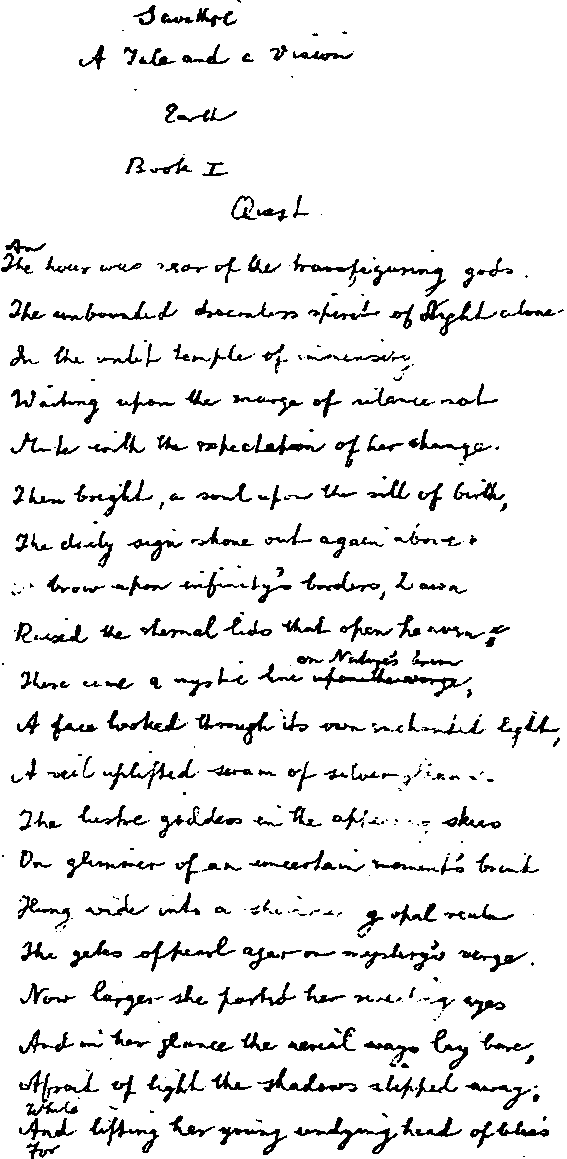 Savithri
A Tale and a Vision
Earth
Book I
Quest
An
The hour was near of the transfiguring gods.
The unbounded dreamless spirit of Night alone
In the unlit temple of immensity
Waiting upon the marge of silence sat
Mute with the expectation of her change.
Then bright, a soul upon the sill of birth,
The daily sign shone out again above;
brow upon infinity's borders, Dawn
Raised the eternal lids that open heaven;
on Nature's brim
There came a mystic line upon the verge,
A face looked through its own enchanted light,
A veil uplifted seam of silver
The lustre goddess in the skies
On glimmer of an uncertain moment's brink
Hung wide into a opal
The gates of pearl ajar on mystery's verge.
Now larger she parted her eyes
And in her glance the aerial ways lay bare,
Afraid of light the shadows slipped away;
While
And lifting her young undying head of bliss
For